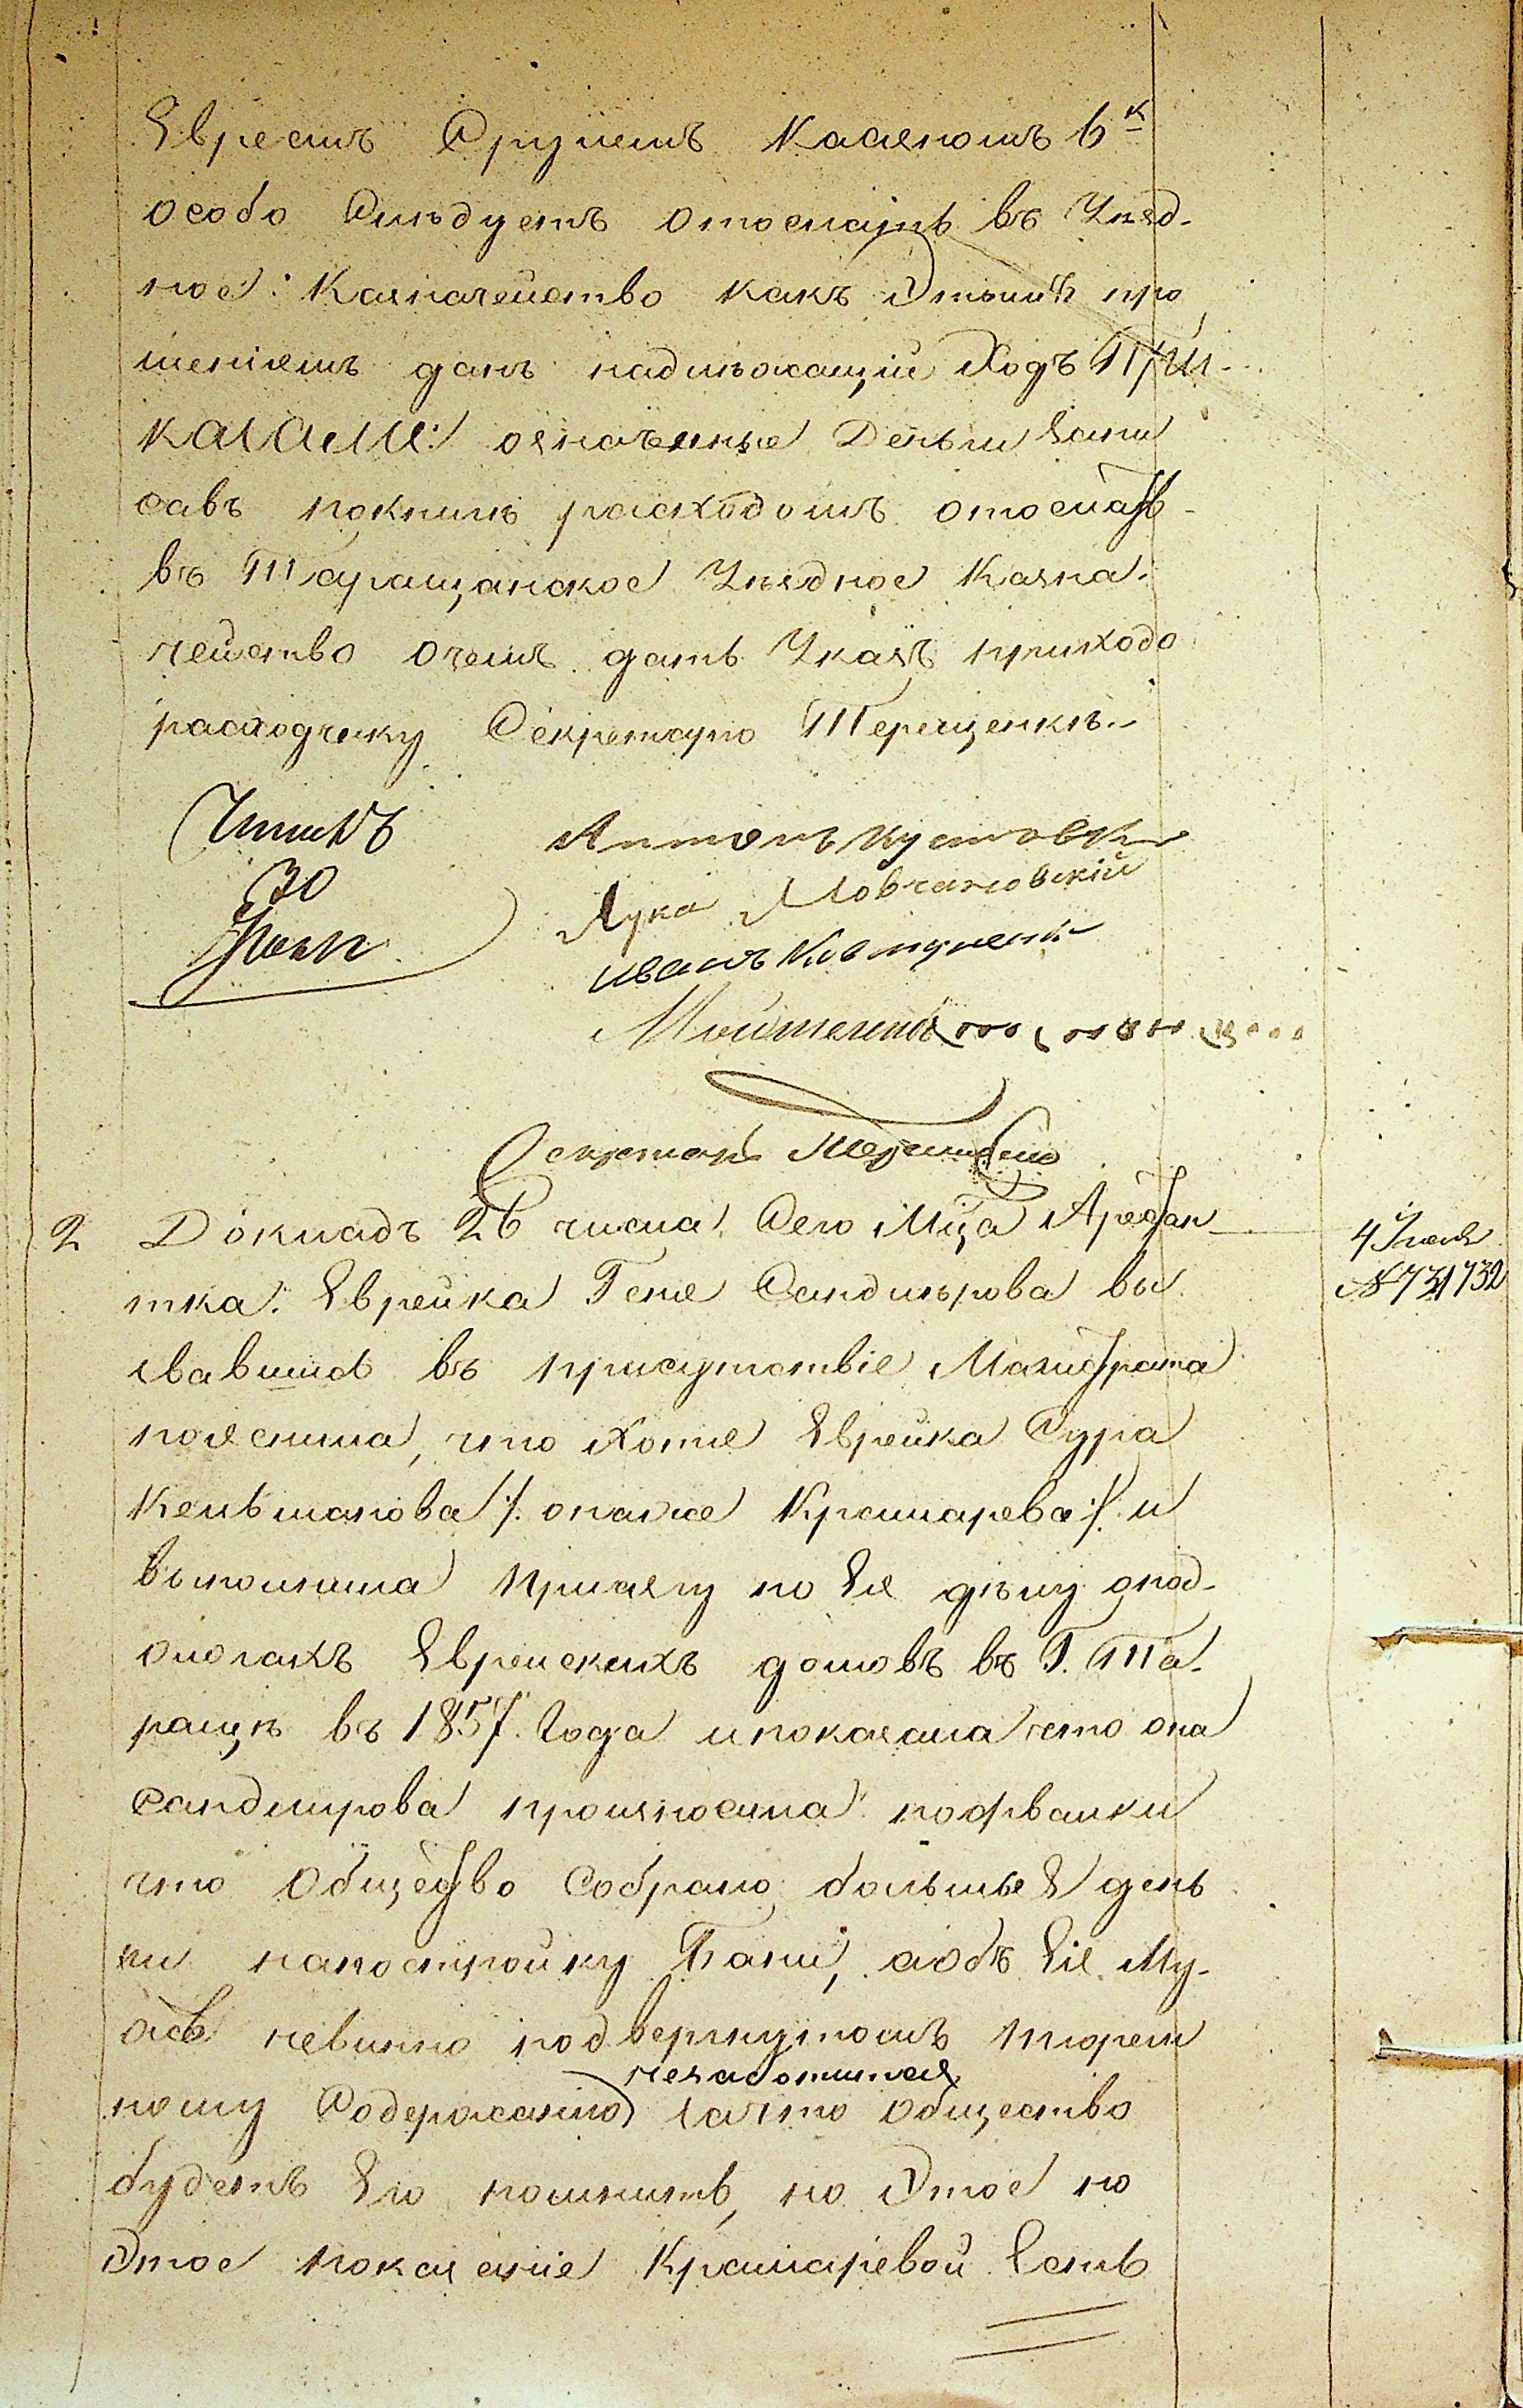 Евреемъ Сруцемъ Касяномъ 6 к
особо Слѣдуетъ отослать въ Уѣзд-
ное Казначейство какъ Этимъ про
шеніемъ данъ надлѣжащій Ходъ При-
казали: означенные Деньги Запи
савъ покниги расходомъ отослать
въ Таращанское Уѣздное Казна-
чейство очемъ дать Указъ приходо
расходчику Секретарю Терещенкѣ.-
Антонъ Кустовск
30
Лука Ловчановскій
Иванъ Ковтуненк
Секретарь Терещенко
2 Докладъ 26 числа Сего Мца Арестан
4 Іюня
тка Еврейка Геня Сандлѣрова вы
№ 731 732
звавшись въ присутствіе Магистрата
пояснила, что Хотя Еврейка Сура
Кельманова /: онаже Крамарева :/ и
выполнила присягу по Ея дѣлу опод-
жогахъ Еврейскихъ домовъ въ Г. Та-
ращѣ въ 1857 Года и показала что она
Сандлирова произносила похвалки
что Общество Собрало большые День
ги напостройку Бани, аобъ Ея Му-
жѣ невинно подвергнутомъ тюрем
незаботится
ному Содержанію зачто Общество
будетъ Его помнить, но Этое по
Этое показаніе Крамаревой Есть